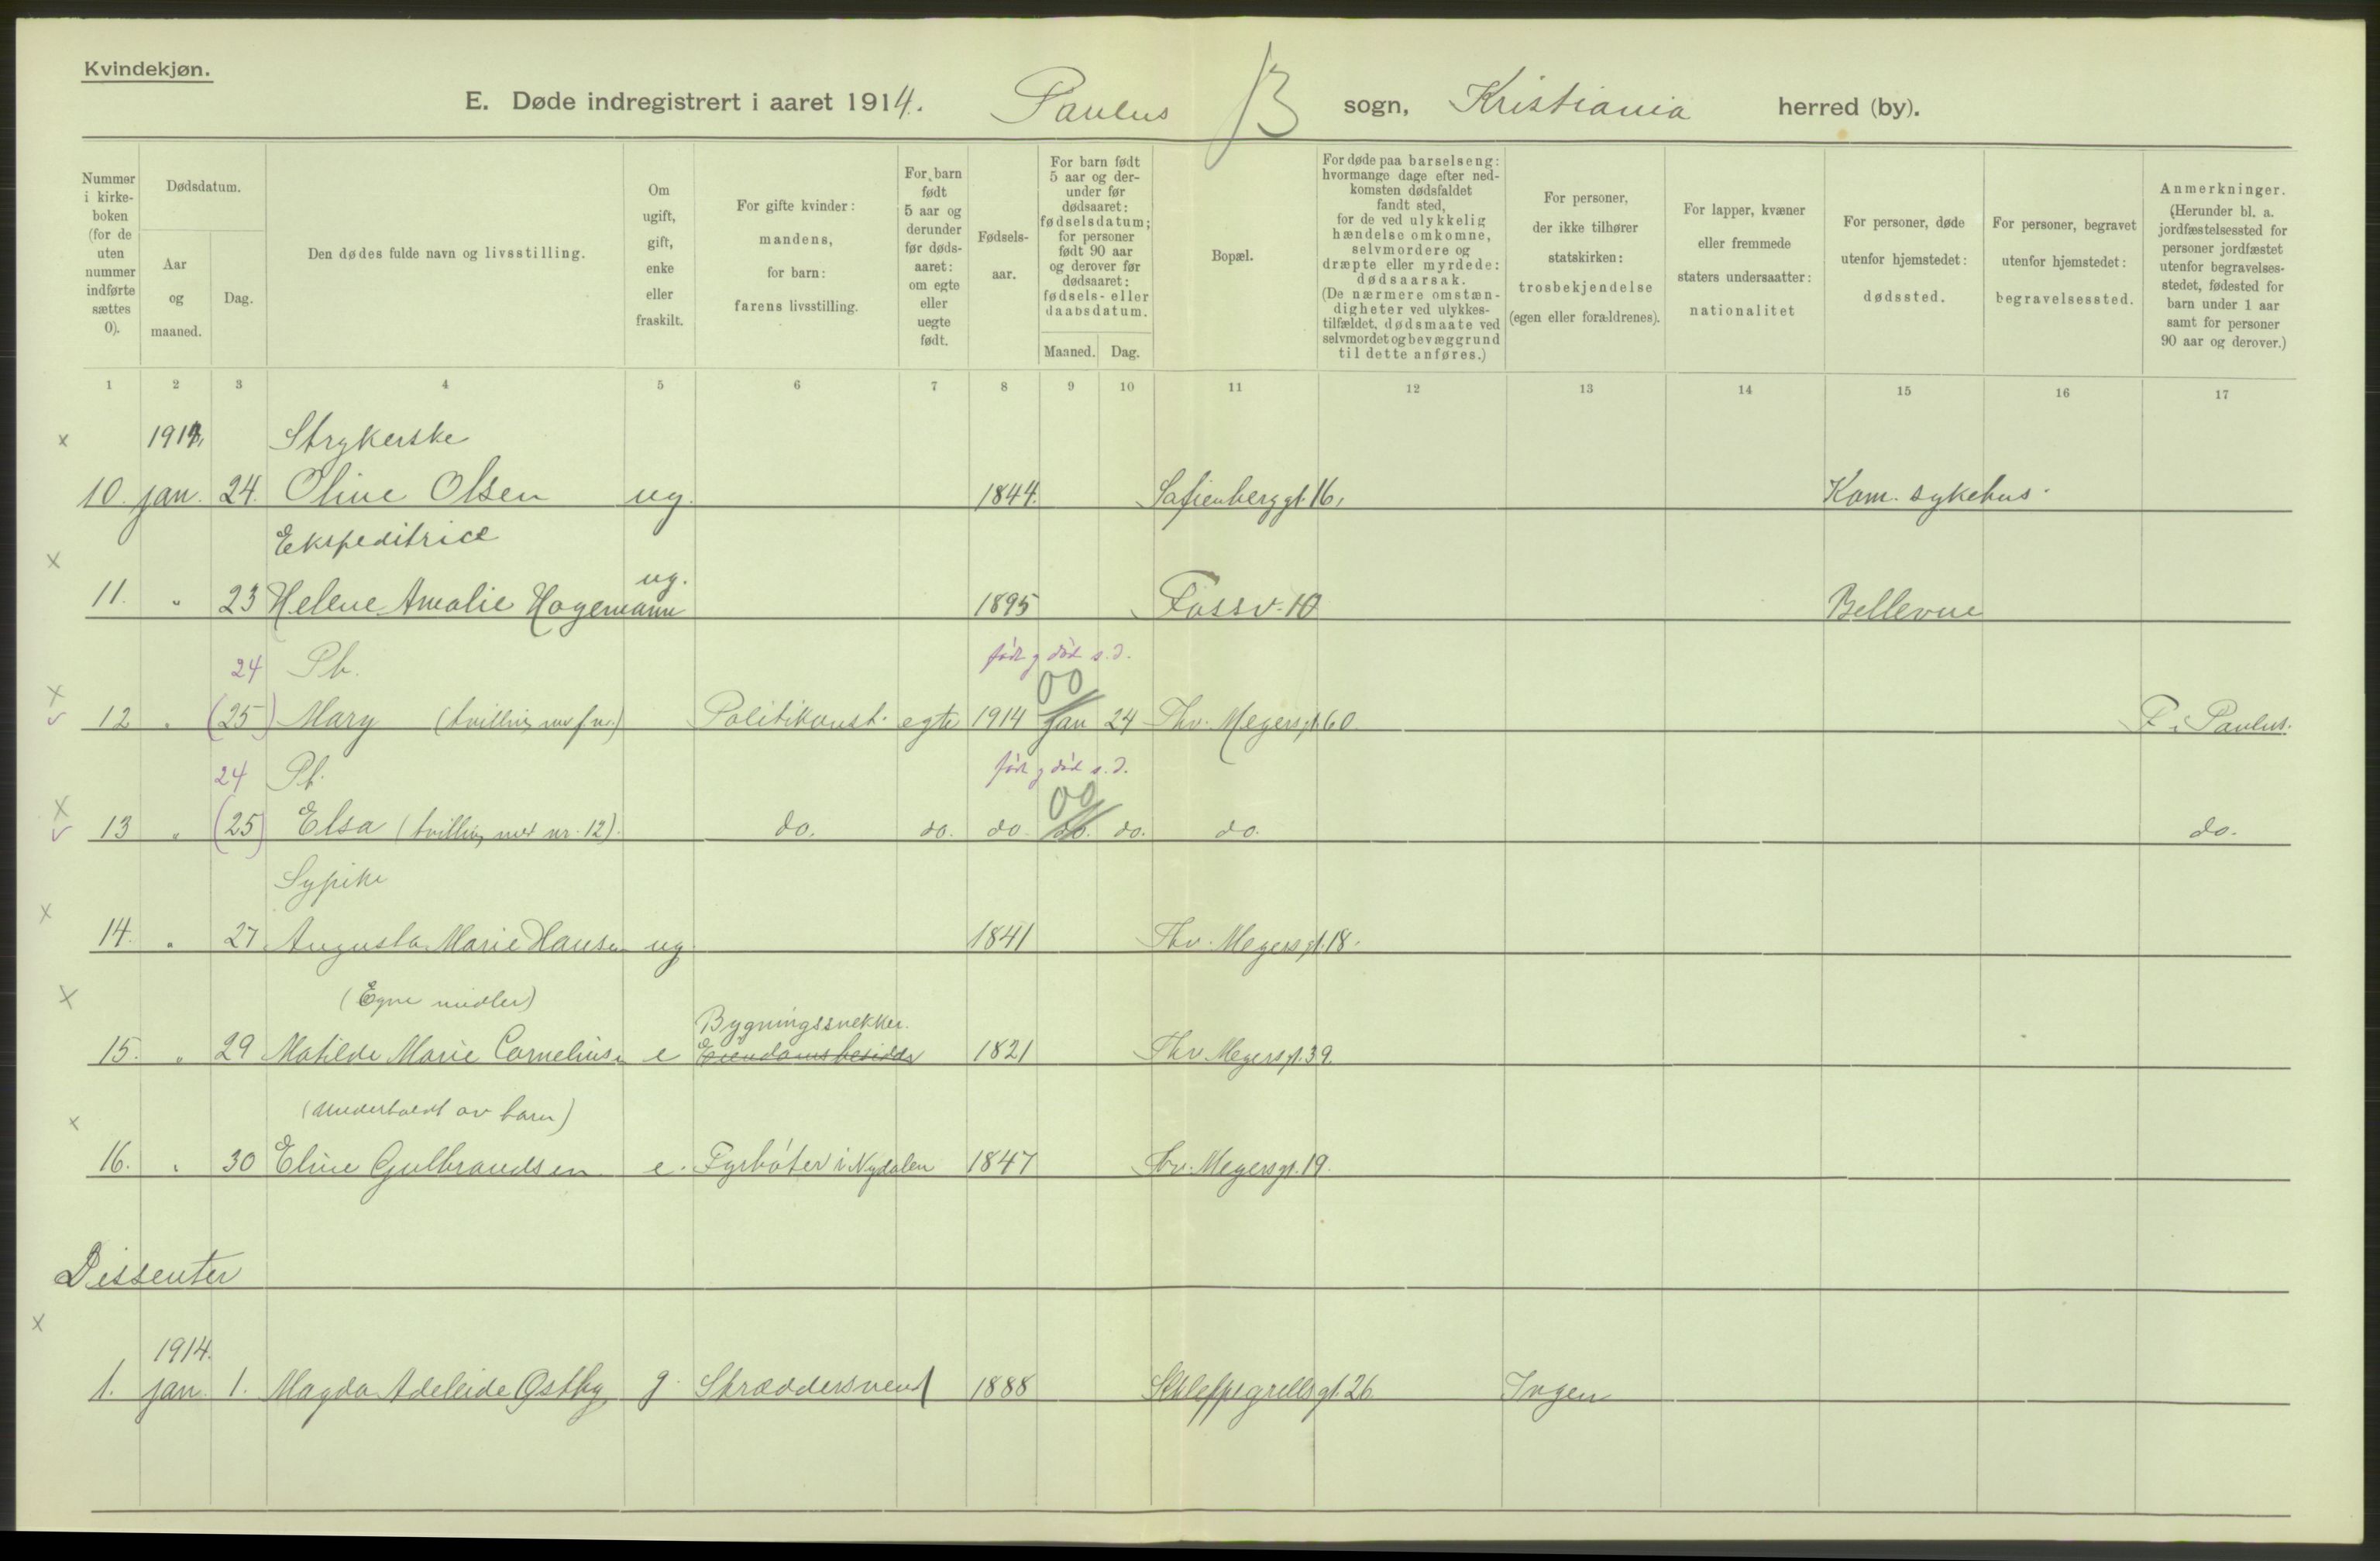 Kvindekjøn.
E. Døde indregistrert i aaret 1914. Paulus B sogn, Kristiania herred (by).
Nummer i kirke-boken (for de uten nummer indførte sættes 0).
Dødsdatum.
Aar og maaned.
Dag.
Den dødes fulde navn og livsstilling.
Om ugift, gift, enke eller fraskilt.
For gifte kvinder: mandens, for barn: farens livsstilling.
For barn født 5 aar og derunder før døds-aaret: om egte eller uegte født.
Fødsels-aar.
For barn født 5 aar og der-under før dødsaaret: fødselsdatum; for personer født 90 aar og derover før dødsaaret: fødsels- eller daabsdatum.
Maaned.
Dag.
Bopæl.
For døde paa barselseng: hvormange dage efter ned-komsten dødsfaldet fandt sted, for de ved ulykkelig hændelse omkomne, selvmordere og dræpte eller myrdede: dødsaarsak. (De nærmere omstæn-digheter ved ulykkes-tilfældet, dødsmaate ved selvmordet og bevæggrund til dette anføres.)
For personer, der ikke tilhører statskirken: trosbekjendelse (egen eller forældrenes).
For lapper, kvæner eller fremmede staters undersaatter: nationalitet
For personer, døde utenfor hjemstedet: dødssted.
For personer, begravet utenfor hjemstedet: begravelsessted.
Anmerkninger. (Herunder bl. a. jordfæstelsessted for personer jordfæstet utenfor begravelses-stedet, fødested for barn under 1 aar samt for personer 90 aar og derover.)
1 2 3 4 5 6 7 8 9 10 11 12 13 14 15 16 17
x 1914, Strykerske
10. jan. 24. Oline Olsen ug. 1844. Sofienberggt. 16, Kom. sykehus.
Ekspeditrice
x 11. " 23 Helene Amalie Hagemann ug. 1895 Fossv. 10 Bellevue
24 Pb. født g død s.d.
x v 12 " (25) Mary (tvilling mx f nr.) Politikonst. egte 1914 00 jan 24 Thv. Meyersgt. 60. F. i Paulus.
24 Pb. født g død s.d.
x v 13 " (25) Elsa (tvilling mx nr. 12). do. do. do. 00 do. do. do. do.
Sypike
x 14. " 27 Augusta Marie Hansen ug. 1841 Thv. Meyersgt. 18.
(Egne midler) Bygningssnekker.
x 15. " 29 Matilde Marie Cornelius e Eiendomsbesidder 1821 Thv. Meyersgt. 39.
(Underholdt av barn)
x 16. " 30 Eline Gulbrandsen e. Fyrbøter i Nydalen 1847 Thv. Meyersgt. 19.
Dissenter
x 1914.
1. jan. 1. Magda Adeleide Østby g. Skræddersvend 1888 Schleppegrellsgt. 26 Ingen